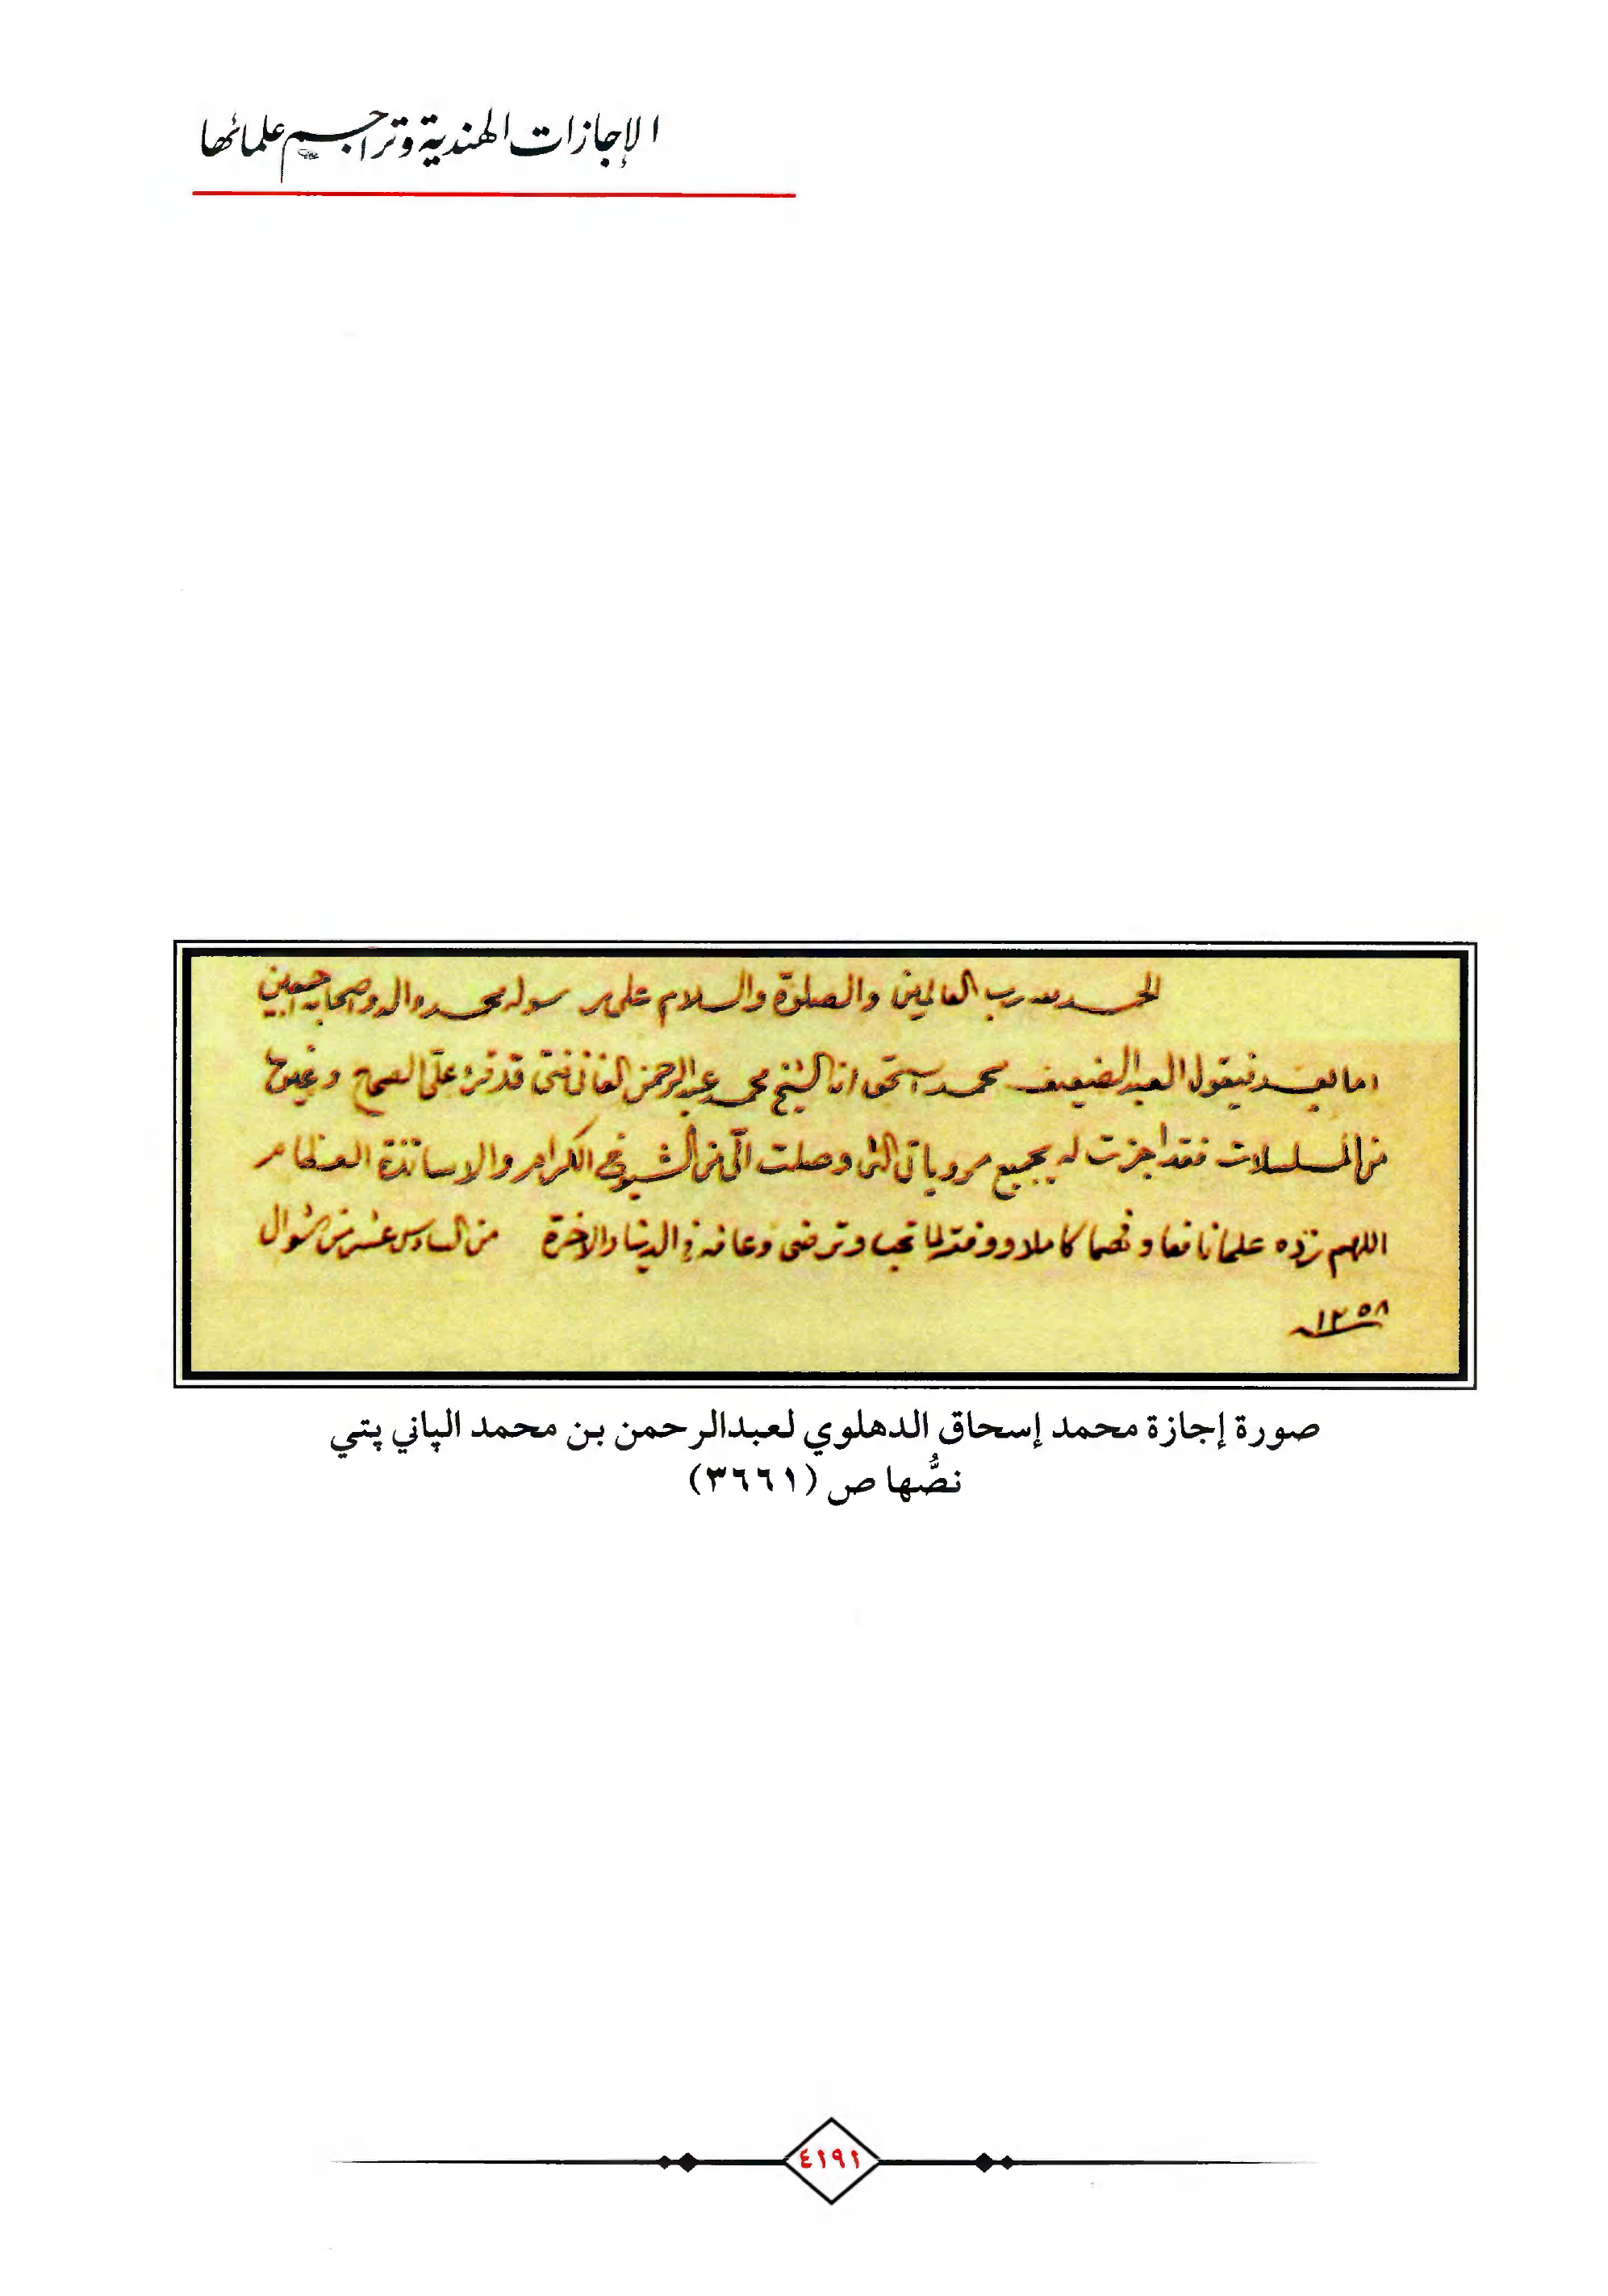 الإجازات الهندية وتراجم علمائها
الحمد لله رب العالمين والصلوة والسلام على رسوله محمد واله واصحابه اجمعين
اما بعد فيقول العبد الضعيف محمد اسحق ان الشيخ محمد عبد الرحمن الفاني فتي قد قرء علي الصحاح وغيرها
من المسلسلات فقد اجزت له بجميع مروياتي التي وصلت الي من الشيوخ الكرام والاساتذة العظام
اللهم زده علما نافعا وفهما كاملا ووفقه لما تحب وترضى وعافه في الدنيا والاخرة من السادس عشر من شوال
١٢٥٨
صورة إجازة محمد إسحاق الدهلوي لعبدالرحمن بن محمد الپاني پتي
نصُّها ص (٣٦٦١)
٤١٩١